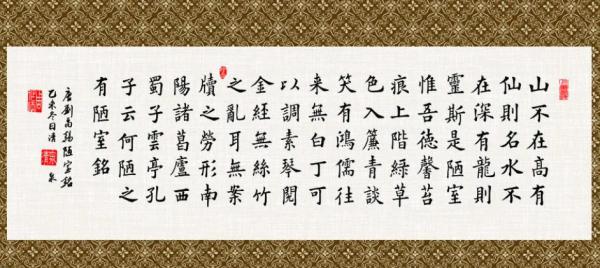 山不在高有
仙則名水不
在深有龍則
靈斯是陋室
惟吾德馨苔
痕上階綠草
色入簾青談
笑有鴻儒往
来無白丁可
以調素琴閱
金経無絲竹
之亂耳無案
牘之勞形南
陽諸葛廬西
蜀子雲亭孔
子云何陋之
有陋室銘
唐劉禹錫陋室銘
乙未冬日清泉